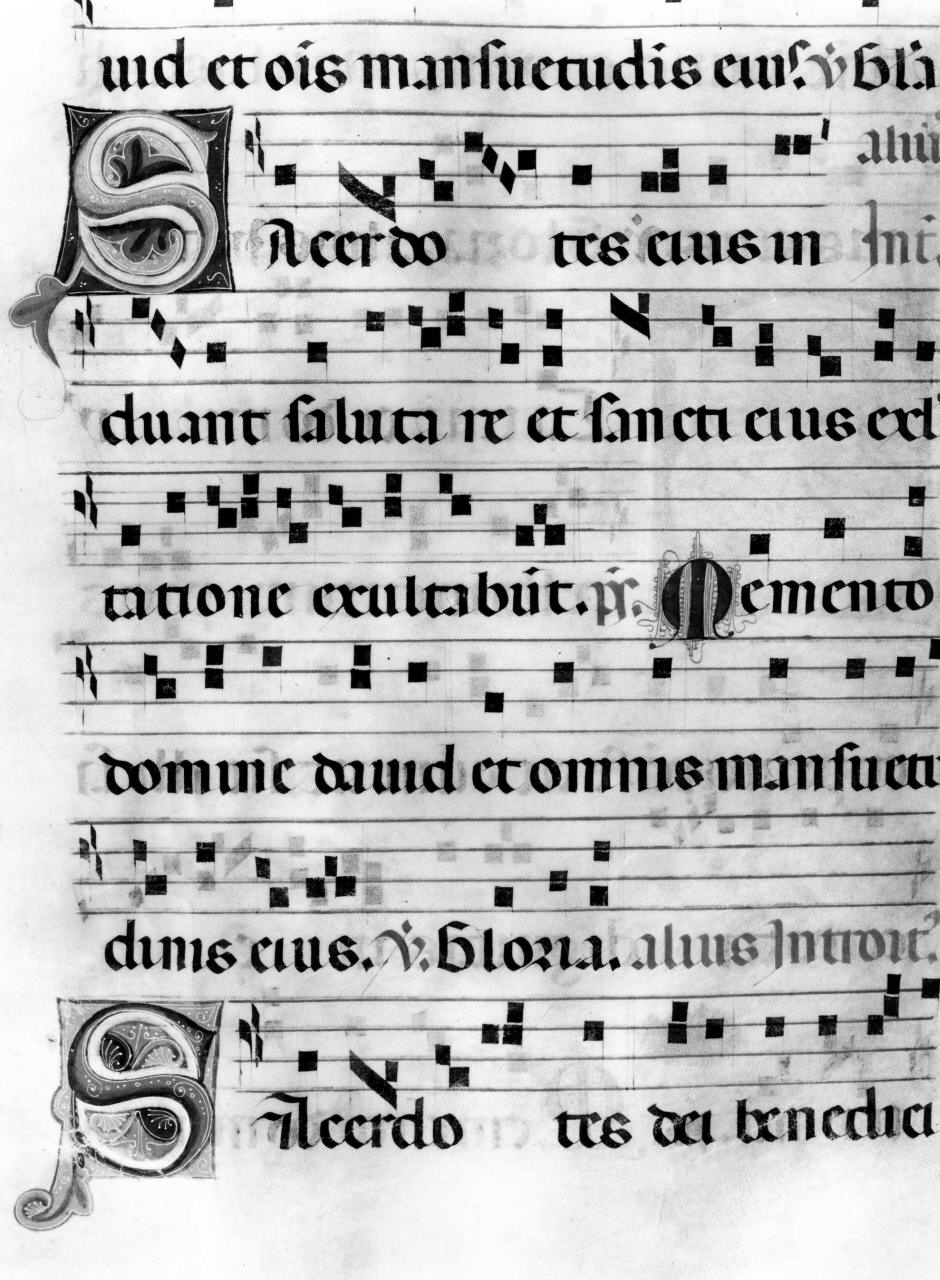 uid et oīs mansuetudīs eius. ℣ Glā
Sacerdo tes eius in
aliū
Int.
duant saluta re et sancti eius exl
tatione exultabūt. p̄s. Memento
domine dauid et omnis mansuetu
dinis eius. ℣. Gloria. alius Introit᷒.
Sacerdo tes dei benedici